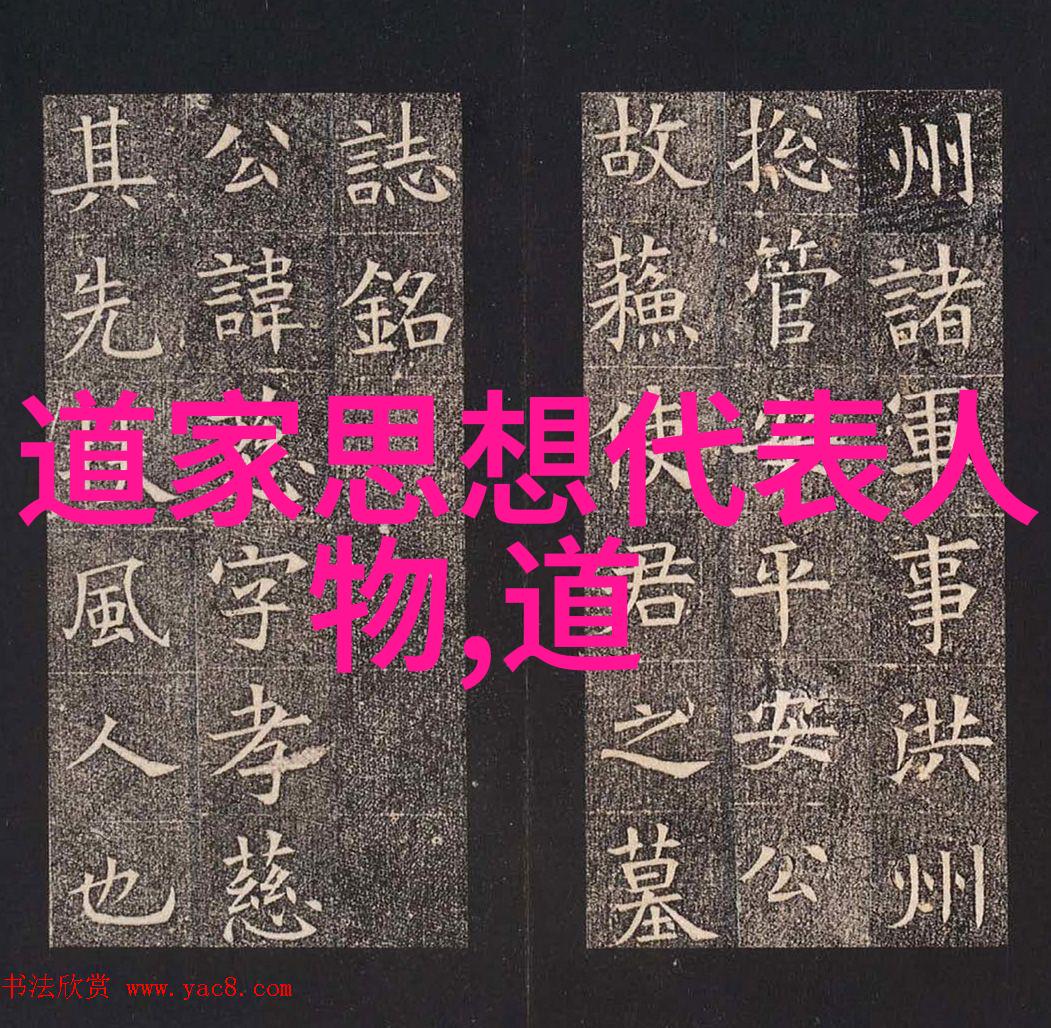 州諸軍事洪州
捴管安平安公
故蘓使君之墓
誌銘
公諱慈字孝慈
其先扶風人也
道家思想代表人
物,道
书法欣赏 www.yac8.com